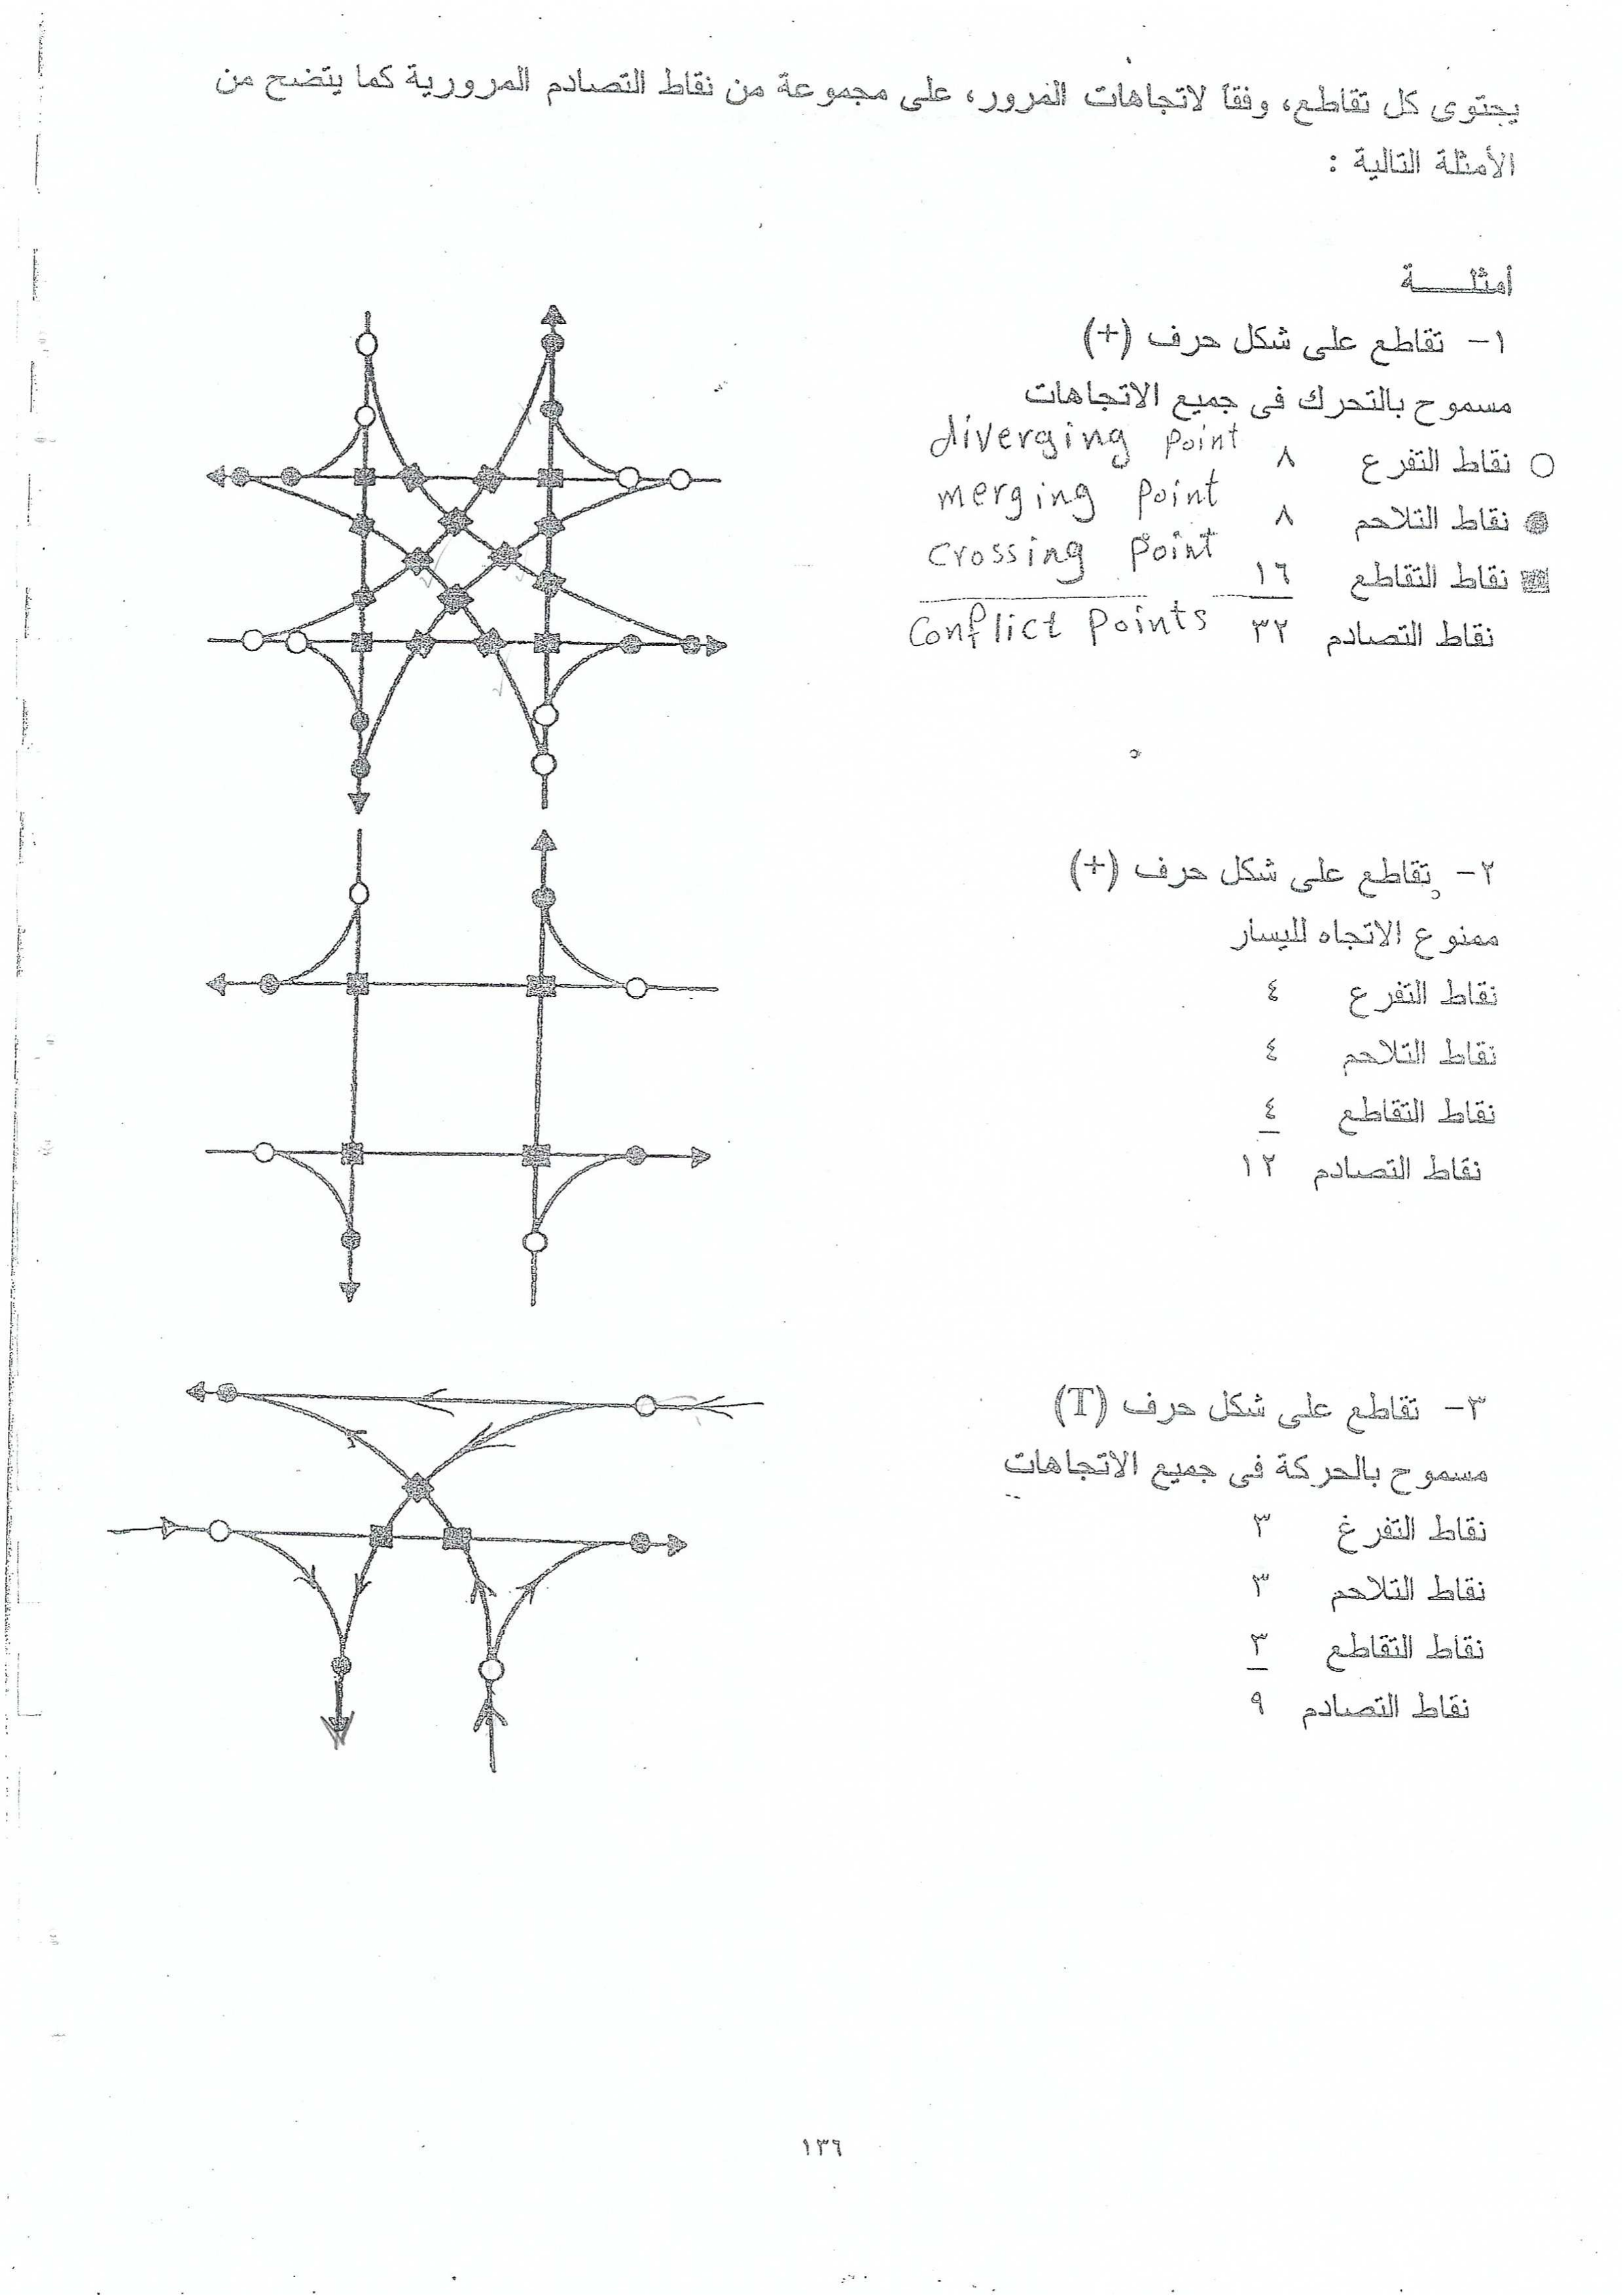 يحتوى كل تقاطع، وفقاً لاتجاهات المرور، على مجموعة من نقاط التصادم المرورية كما يتضح من
الأمثلة التالية :
أمثلــــــة
١- تقاطع على شكل حرف (+)
مسموح بالتحرك فى جميع الاتجاهات
نقاط التفرع ٨ diverging point
نقاط التلاحم ٨ merging point
نقاط التقاطع ١٦ crossing point
نقاط التصادم ٣٢ conflict points
٢- تقاطع على شكل حرف (+)
ممنوع الاتجاه لليسار
نقاط التفرع ٤
نقاط التلاحم ٤
نقاط التقاطع ٤
نقاط التصادم ١٢
٣- تقاطع على شكل حرف (T)
مسموح بالحركة فى جميع الاتجاهات
نقاط التفرغ ٣
نقاط التلاحم ٣
نقاط التقاطع ٣
نقاط التصادم ٩
١٣٦